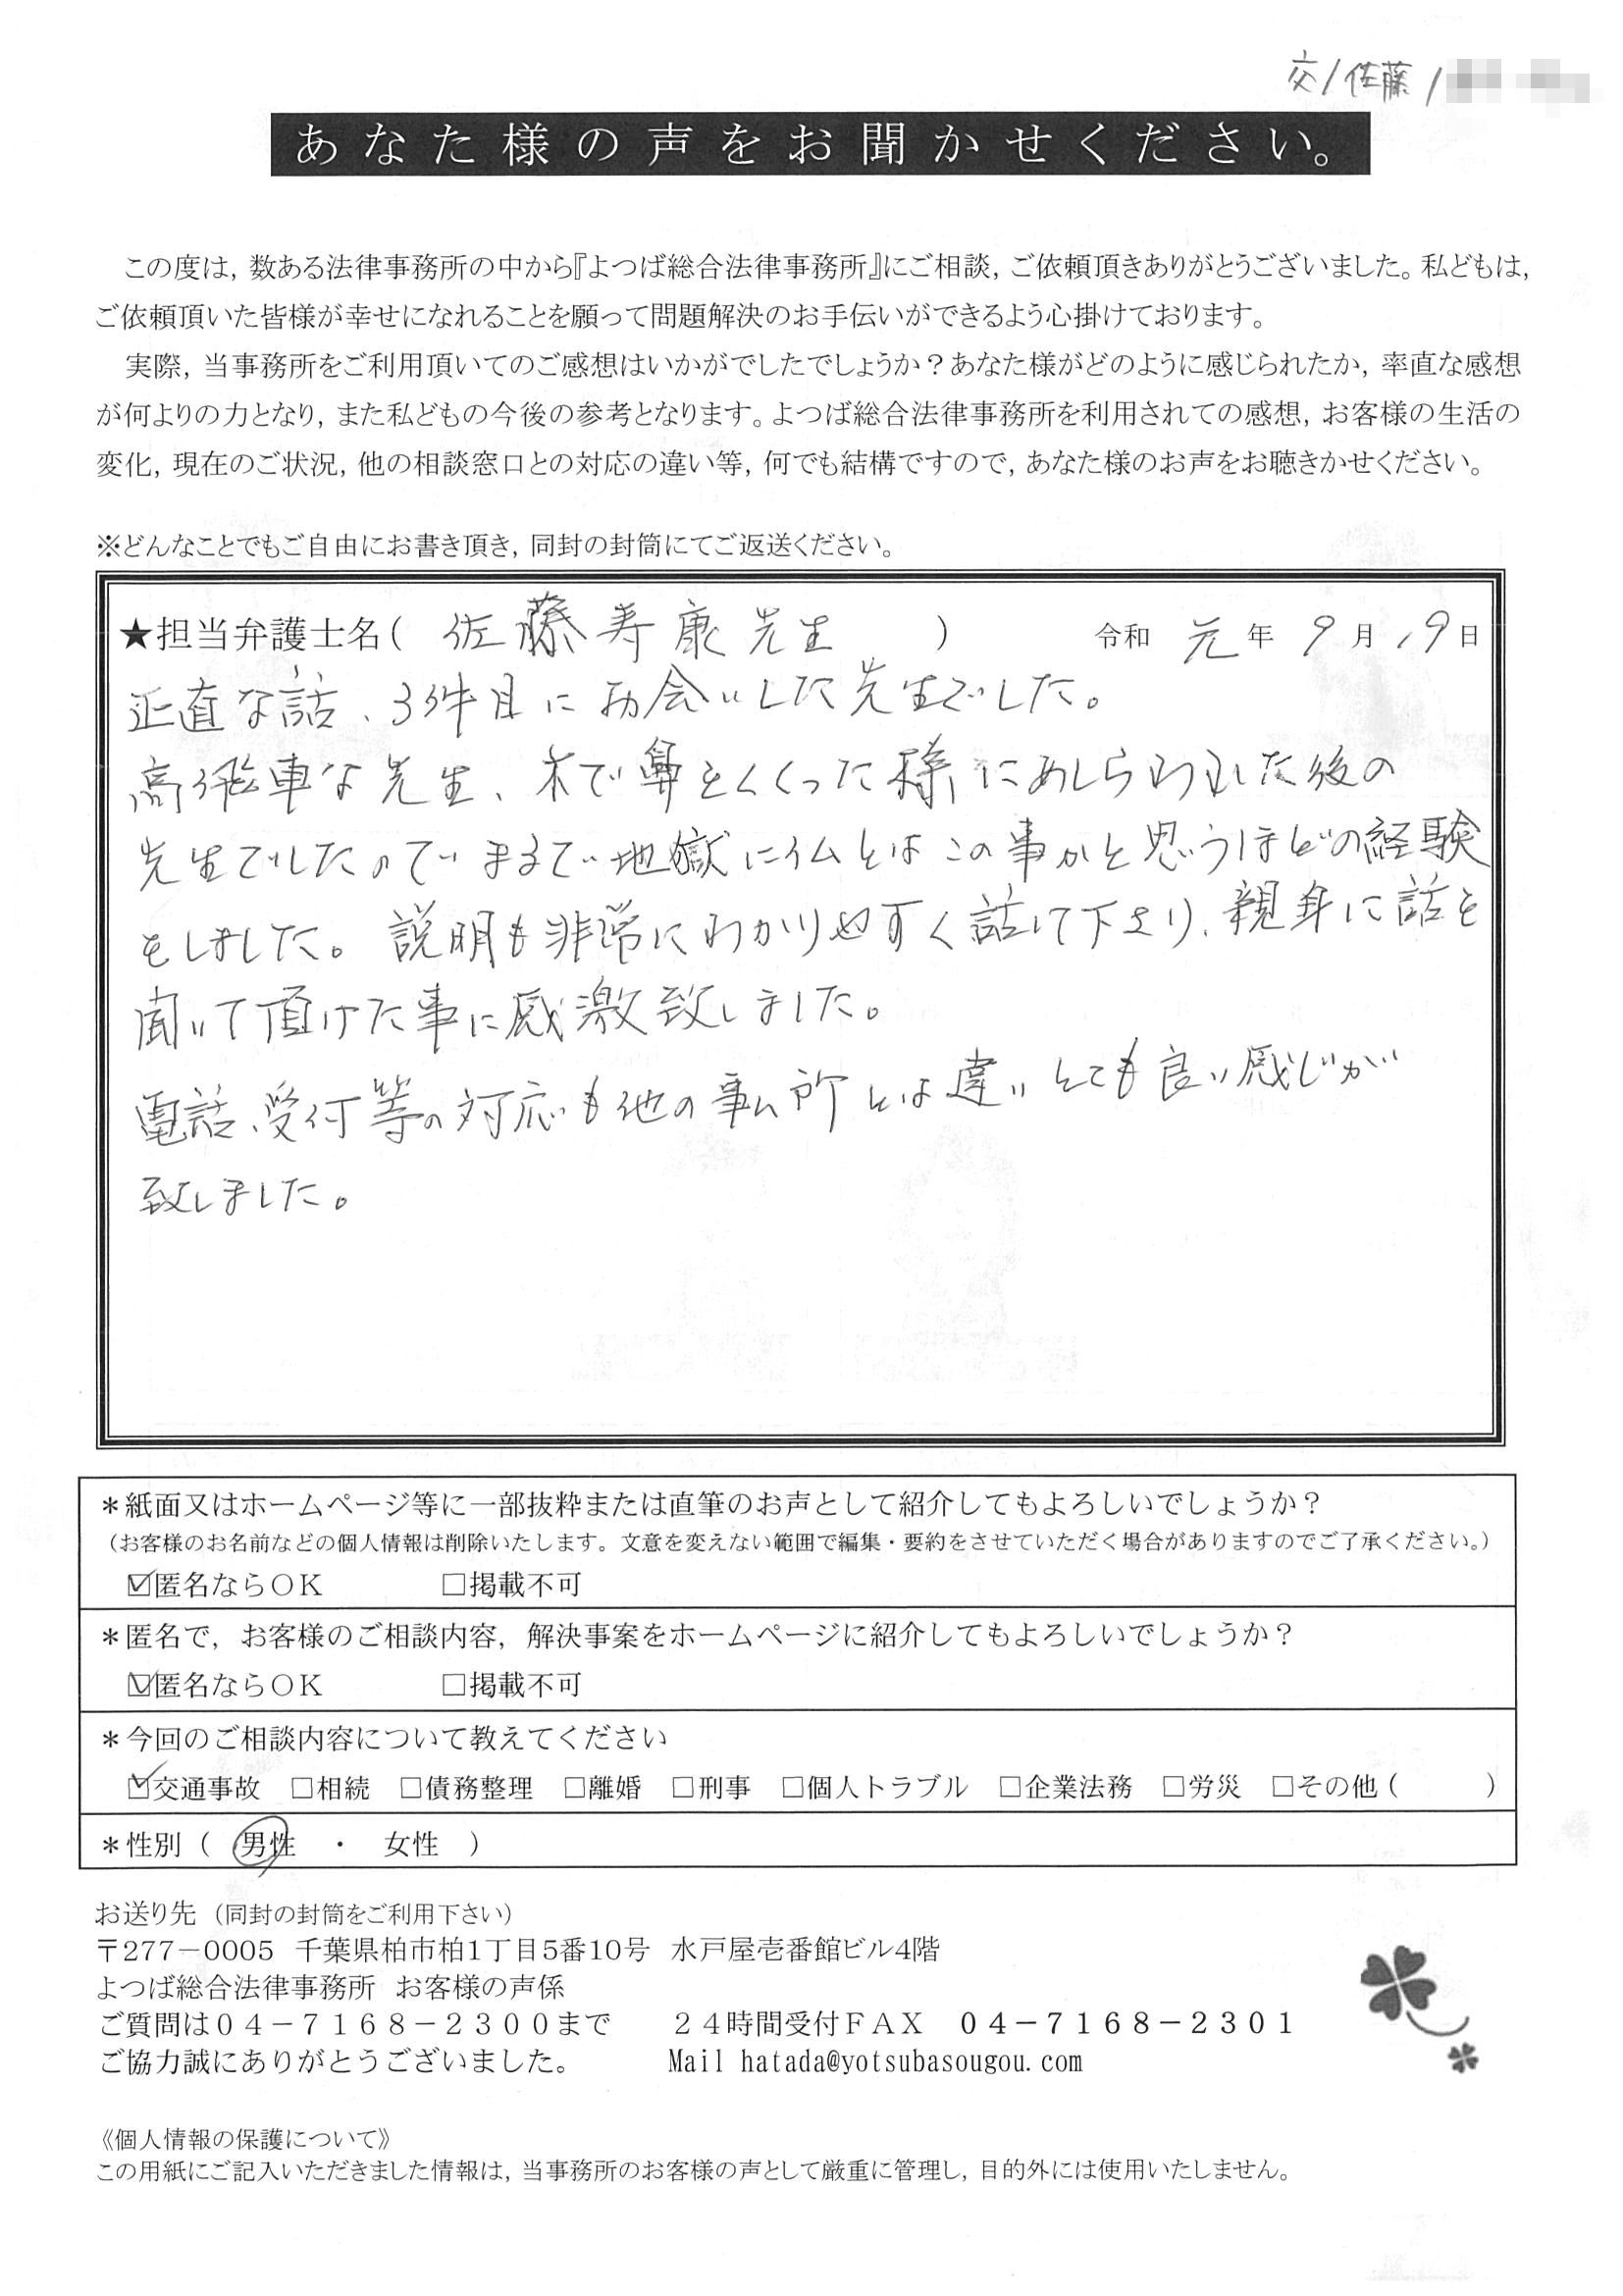 交/佐藤/
あなた様の声をお聞かせください。
この度は，数ある法律事務所の中から『よつば総合法律事務所』にご相談，ご依頼頂きありがとうございました。私どもは，
ご依頼頂いた皆様が幸せになれることを願って問題解決のお手伝いができるよう心掛けております。
実際，当事務所をご利用頂いてのご感想はいかがでしたでしょうか？あなた様がどのように感じられたか，率直な感想
が何よりの力となり，また私どもの今後の参考となります。よつば総合法律事務所を利用されての感想，お客様の生活の
変化，現在のご状況，他の相談窓口との対応の違い等，何でも結構ですので，あなた様のお声をお聴きかせください。
※どんなことでもご自由にお書き頂き，同封の封筒にてご返送ください。
★担当弁護士名( 佐藤寿康先生 ) 令和 元 年 9 月 19 日
正直な話、3件目にお会いした先生でした。
高飛車な先生、木で鼻をくくった様にあしらわれた後の
先生でしたのでまるで地獄に仏とはこの事かと思うほどの経験
をしました。説明も非常にわかりやすく話して下さり、親身に話を
聞いて頂けた事に感激致しました。
電話、受付等の対応も他の事ム所とは違いとても良い感じが
致しました。
＊紙面又はホームページ等に一部抜粋または直筆のお声として紹介してもよろしいでしょうか？
（お客様のお名前などの個人情報は削除いたします。文意を変えない範囲で編集・要約をさせていただく場合がありますのでご了承ください。）
☑匿名ならＯＫ □掲載不可
＊匿名で，お客様のご相談内容，解決事案をホームページに紹介してもよろしいでしょうか？
☑匿名ならＯＫ □掲載不可
＊今回のご相談内容について教えてください
☑交通事故 □相続 □債務整理 □離婚 □刑事 □個人トラブル □企業法務 □労災 □その他（ ）
＊性別（ 男性 ・ 女性 ）
お送り先（同封の封筒をご利用下さい）
〒277－0005 千葉県柏市柏1丁目5番10号 水戸屋壱番館ビル4階
よつば総合法律事務所 お客様の声係
ご質問は０４－７１６８－２３００まで ２４時間受付ＦＡＸ ０４－７１６８－２３０１
ご協力誠にありがとうございました。 Mail hatada@yotsubasougou.com
《個人情報の保護について》
この用紙にご記入いただきました情報は，当事務所のお客様の声として厳重に管理し，目的外には使用いたしません。